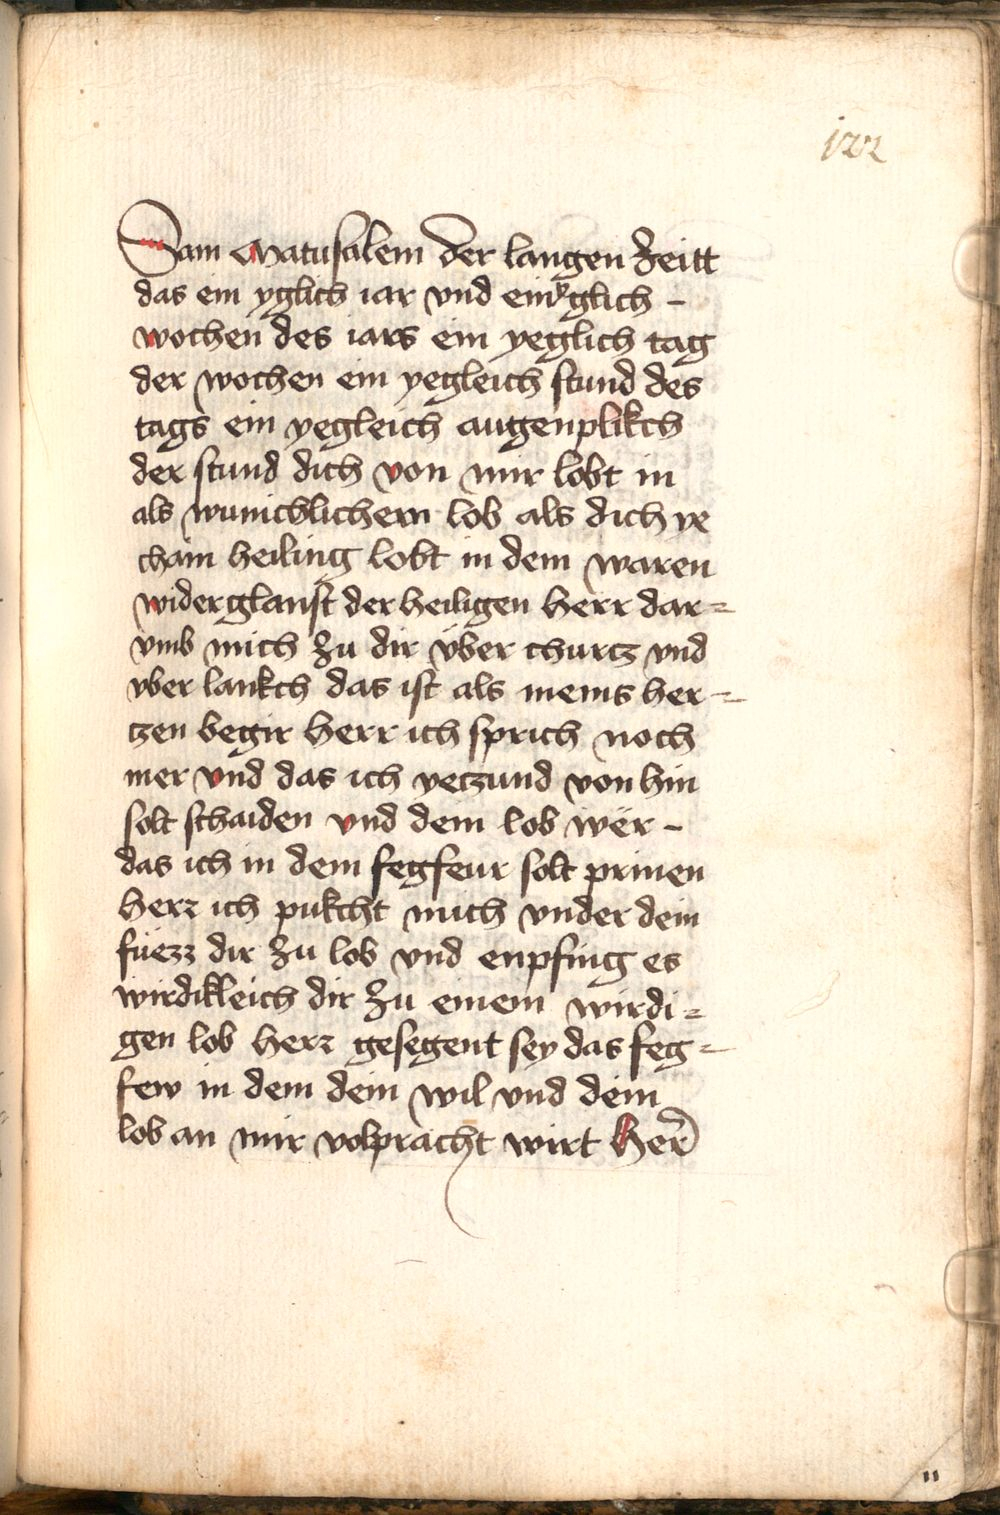 122
Sam Matusalem der langen zeitt
das ein yglich iar vnd ein yglich -
wochen des iars ein yeglich tag
der wochen ein yegleich stund des
tags ein yegleich augenplikch
der stund dich von mir lobt in
als wunichlichem lob als dich ye
chain heiling lobt in dem waren
widerglanst der heiligen herr dar=
vmb mich zu dir über churcz vnd
vber lankch das ist als meins her=
tzen begir herr ich sprich noch
mer vnd das ich yeczund von hin
solt schaiden vnd dein lob wër -
das ich in dem fegfeur solt prinen
herr ich pukcht mich vnder dein
füezz dir zu lob vnd enpfing es
wirdikleich dir zu einem wirdi=
gen lob herr gesegent sey das feg=
few in dem dein wil vnd dein
lob an mir volpracht wirt her